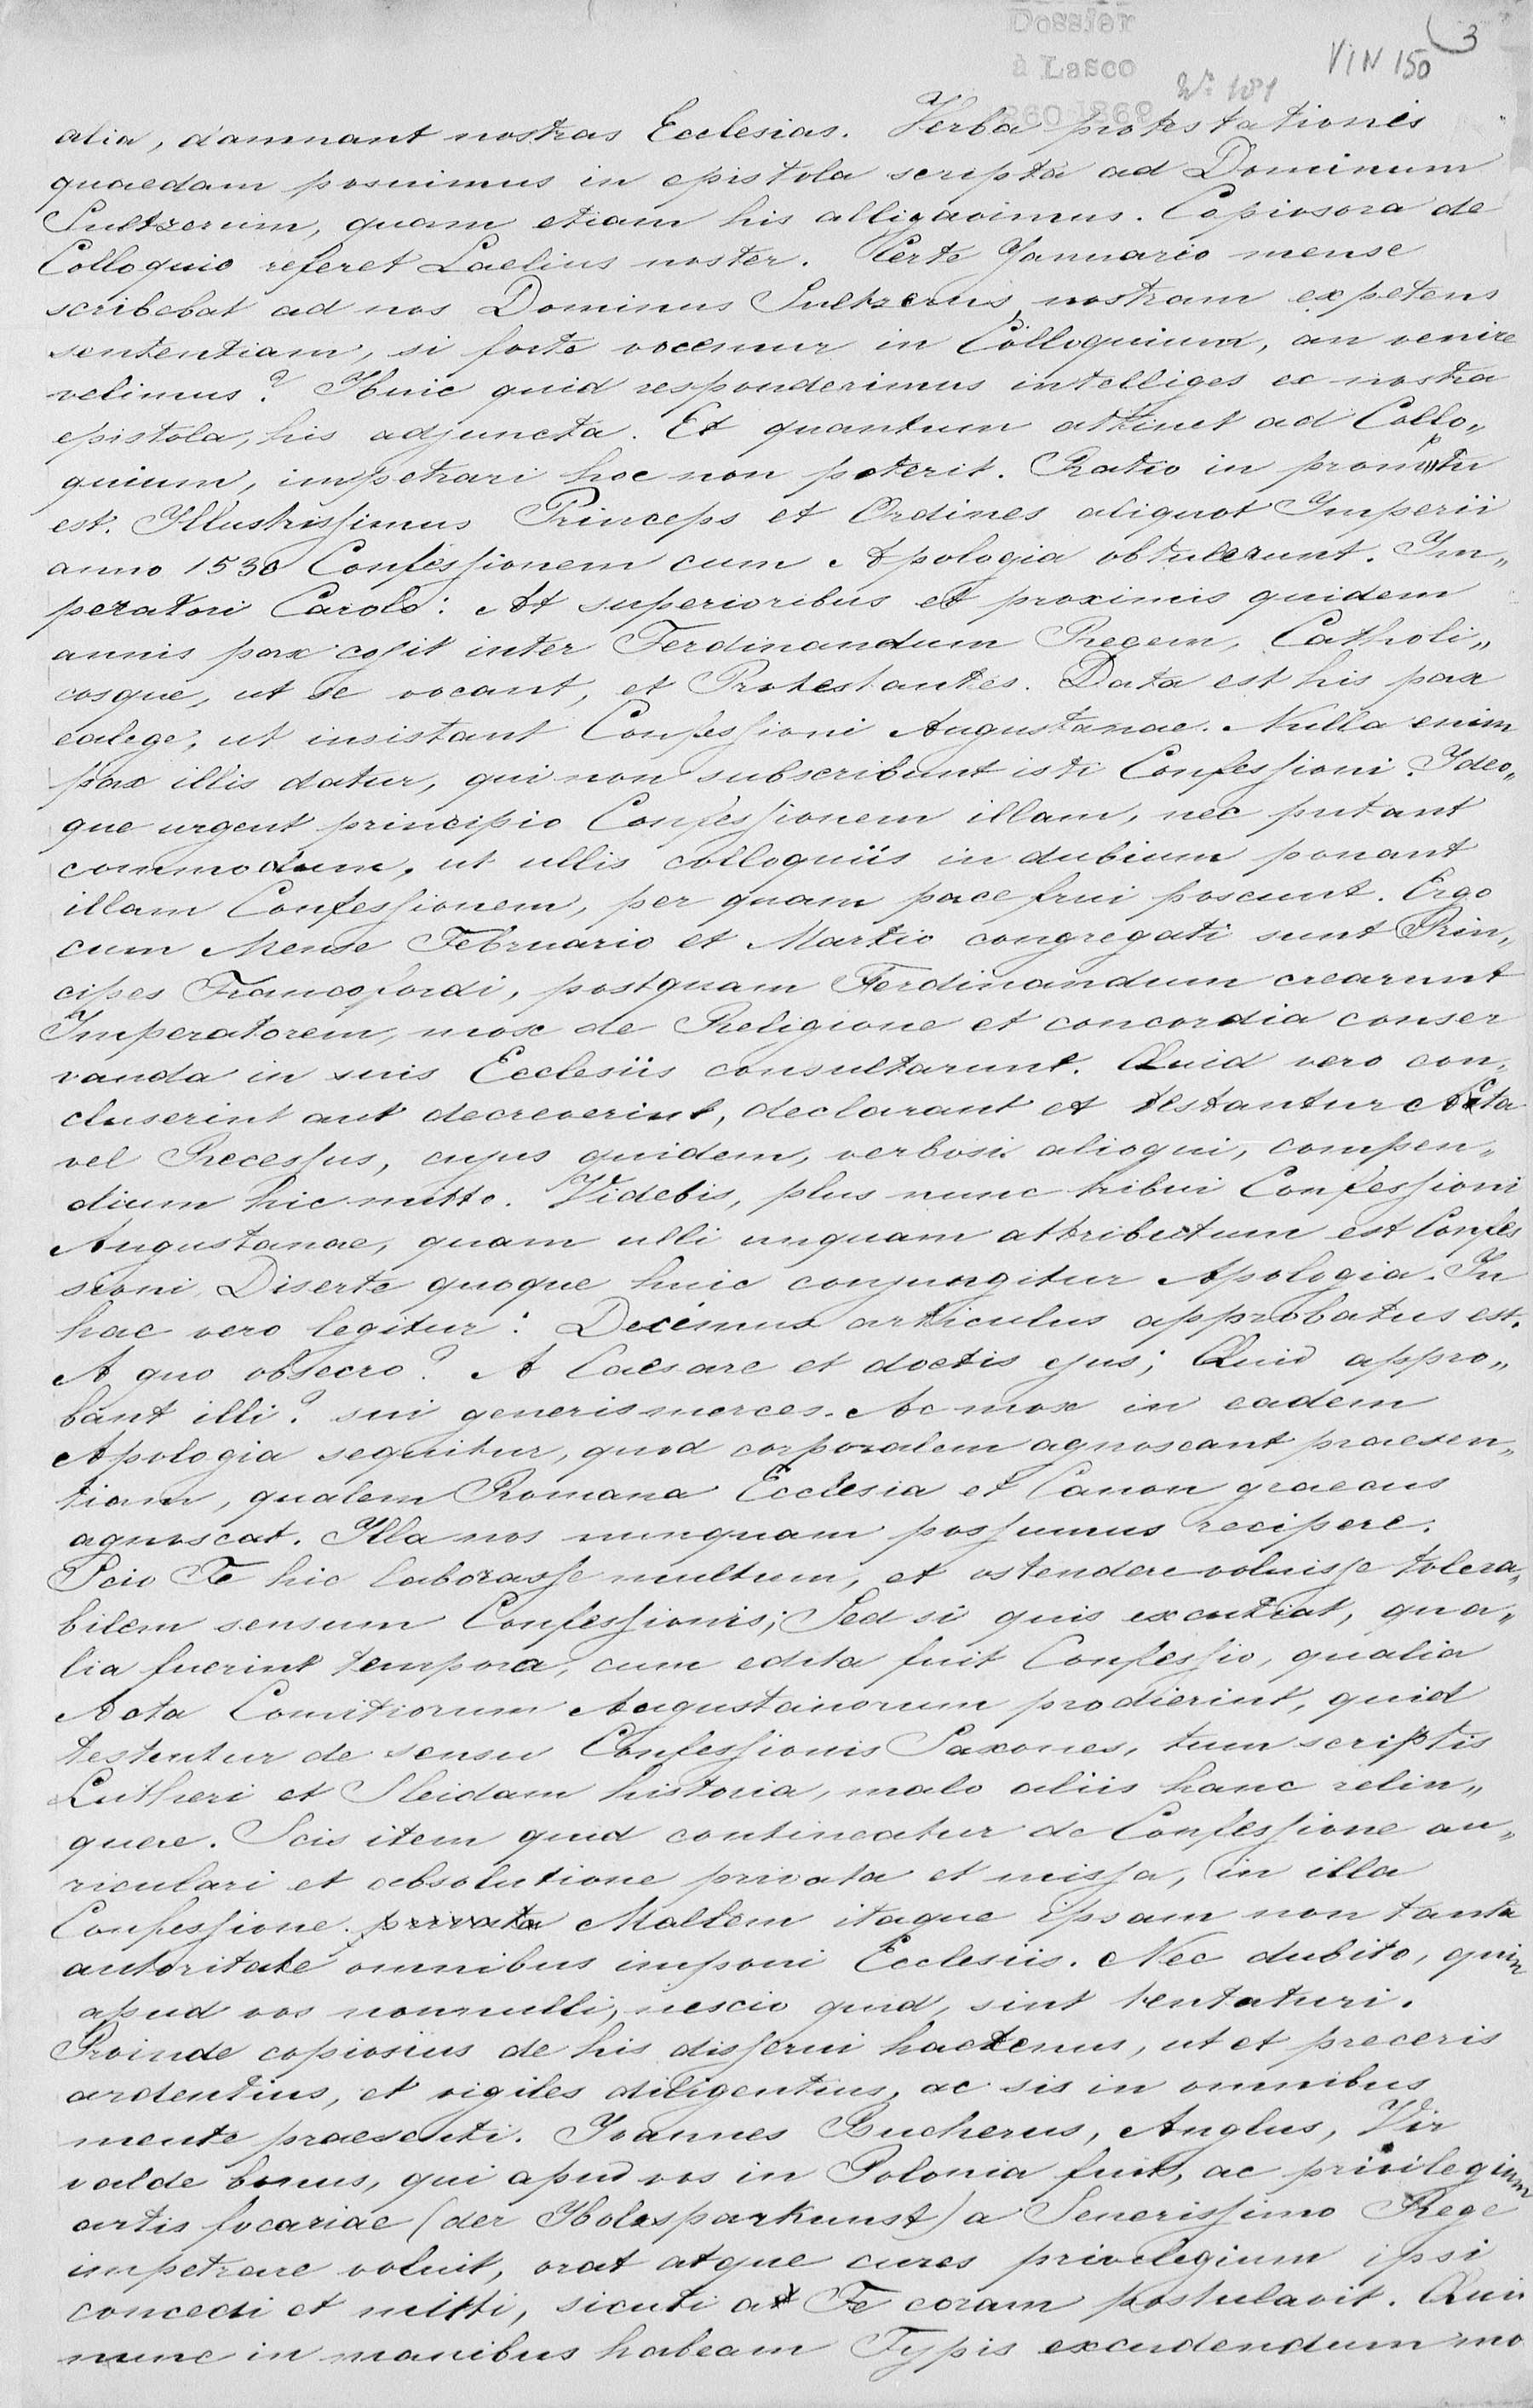 Dossier
à Lasco
1860-1869
No 181
VIN 150
3
alia, damnant nostras Ecclesias. Verba protestationis
quaedam posuimus in epistola scripta ad Dominum
Sultzerum, quam etiam his alligavimus. Copiosora de
Colloquio referet Laelius noster. Certe Januario mense
scribebat ad nos Dominus Sultzerus, nostram expetens
sententiam, si forte vocemur in Colloquium, an venire
velimus? Huic quid responderimus intelliges ex nostra
epistola, his adjuncta. Et quantum attinet ad Collo„
quium, impetrari hoc non poterit. Ratio in promptu
est. Illustrissimus Princeps et Ordines aliquot Imperii
anno 1530 Confessionem cum Apologia obtulerunt. Im„
peratori Carolo: At superioribus et proximis quidem
annis pax coiit inter Ferdinandum Regem, Catholi„
cosque, ut se vocant, et Protestantes. Data est his pax
ealege, ut insistant Confessioni Augustanae. Nulla enim
pax illis datur, qui non subscribunt isti Confessioni. Ideo„
que urgent principio Confessionem illam, nec putant
commodum, ut ullis colloquiis in dubium ponant
illam Confessionem, per quam pace frui poscunt. Ergo
cum Mense Februario et Martio congregati sunt Prin„
cipes Francofordi, postquam Ferdinandum crearunt
Imperatorem, mox de Religione et concordia conser
vanda in suis Ecclesiis consultarunt. Quid vero con„
cluserint aut decreverint, declarant et testantur Acta
vel Recessus, cujus quidem, verbosi alioqui, compen„
dium hic mitto. Videbis, plus nunc tribui Confessioni
Augustanae, quam ulli unquam attributum est Confes
sioni, Diserte quoque huic conjungitur Apologia. In
hac vero legitur: Decimus articulus approbatus est.
A quo obsecro? A Caesare et doctis ejus; Quid appro„
bant illi? sui generis merces. Ac mox in eadem
Apologia sequitur, quod corporalem agnoscant praesen„
tiam, qualem Romana Ecclesia et Canon graecus
agnoscat. Illa nos nunquam possumus recipere.
Scio Te hic laborasse multum, et ostendere voluisse tolera„
bilem sensum Confessionis; Sed si quis excutiat, qua„
lia fuerint tempora, cum edita fuit Confessio, qualia
Acta Comitiorum Augustanorum prodierint, quid
testentur de sensu Confessionis Saxones, tum scriptis
Lutheri et Sleidam historia, malo aliis hanc relin„
quere. Scis item quid contineatur de Confessione au„
riculari et absolutione privata et missa, in illa
Confessione. privata Mallem itaque ipsam non tanta
autoritate omnibus imponi Ecclesiis. Nec dubito, quin
apud vos nonnulli, nescio quid, sint tentaturi.
Proinde copiosius de his disserui hactenus, ut et preceris
ardentius, et vigiles diligentius, ac sis in omnibus
mente praesenti. Joannes Bucherus, Anglus, Vir
valde bonus, qui apud vos in Polonia fuit, ac privilegium
artis focariae (der Holzsparkunst) a Serenissimo Rege
impetrare voluit, orat atque cures privilegium ipsi
concedi et mitti, sicuti a Te coram postulavit. Quid
nunc in manibus habeam Typis excudendum mo